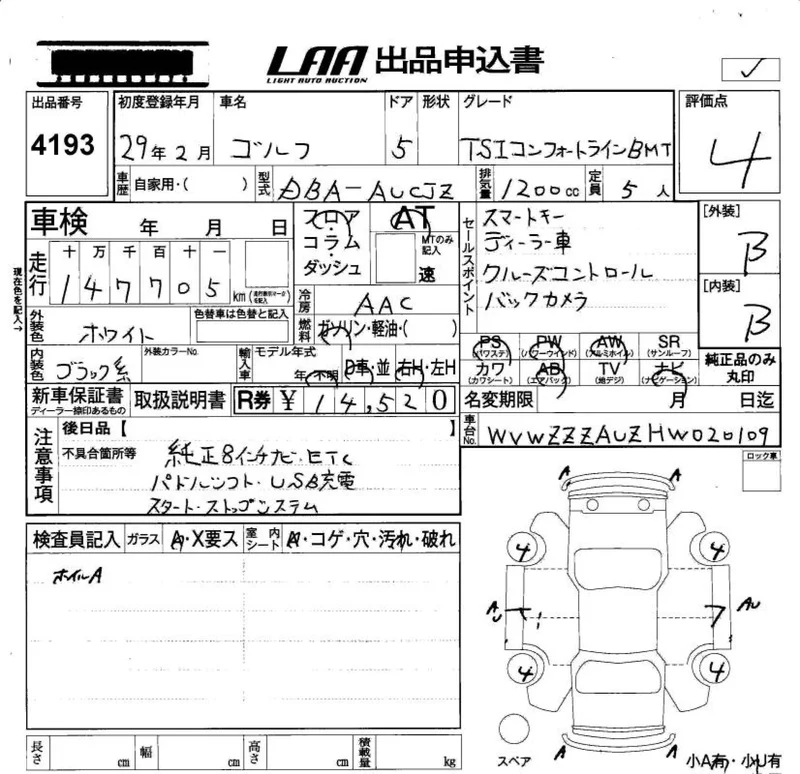 LAA 出品申込書
LIGHT AUTO AUCTION
出品番号 初度登録年月 車名 ドア 形状 グレード 評価点
4193 29年2月 ゴルフ 5 TSIコンフォートラインBMT 4
車歴 自家用・( ) 型式 DBA-AUCJZ 排気量 1200cc 定員 5人
車検 年 月 日
フロア AT
コラム MTのみ記入
ダッシュ 速
セールスポイント
スマートキー
ディーラー車
クルーズコントロール
バックカメラ
[外装]
B
[内装]
B
現在色を記入→
走行 十万千百十一
147705 km (走行表示マークを記入)
冷房 AAC
燃料 ガソリン・軽油・( )
外装色 ホワイト 色替車は色替と記入
内装色 ブラック系 外装カラーNo. 輸入車 モデル年式
年・不明 D車・並 右H・左H
PS (パワステ) PW (パワーウインド) AW (アルミホイル) SR (サンルーフ)
カワ (カワシート) AB (エアバック) TV (地デジ) ナビ (ナビゲーション)
純正品のみ丸印
新車保証書 ディーラー捺印あるもの 取扱説明書 R券 ¥ 14,520
名変期限 月 日迄
車台No. WVWZZZAUZHW020109
注意事項
後日品【 】
不具合箇所等 純正8インチナビ・ETC
パドルシフト・USB充電
スタート・ストップシステム
ロック車
検査員記入 ガラス A・X要ス 室内シート A・コゲ・穴・汚れ・破れ
ホイルA
A A
4 4
AU AU
4 4
A A
スペア
長さ cm 幅 cm 高さ cm 積載量 kg
小A有・小U有